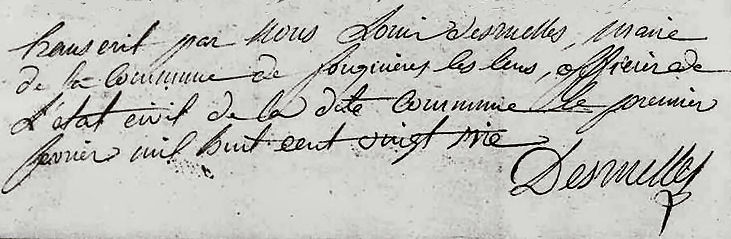 transcrit par Nous Louis Desruelles, maire
de la commune de fouquieres les lens, officier de
L'état civil de la dite commune le premier
fevrier mil huit cent vingt six
Desruelles